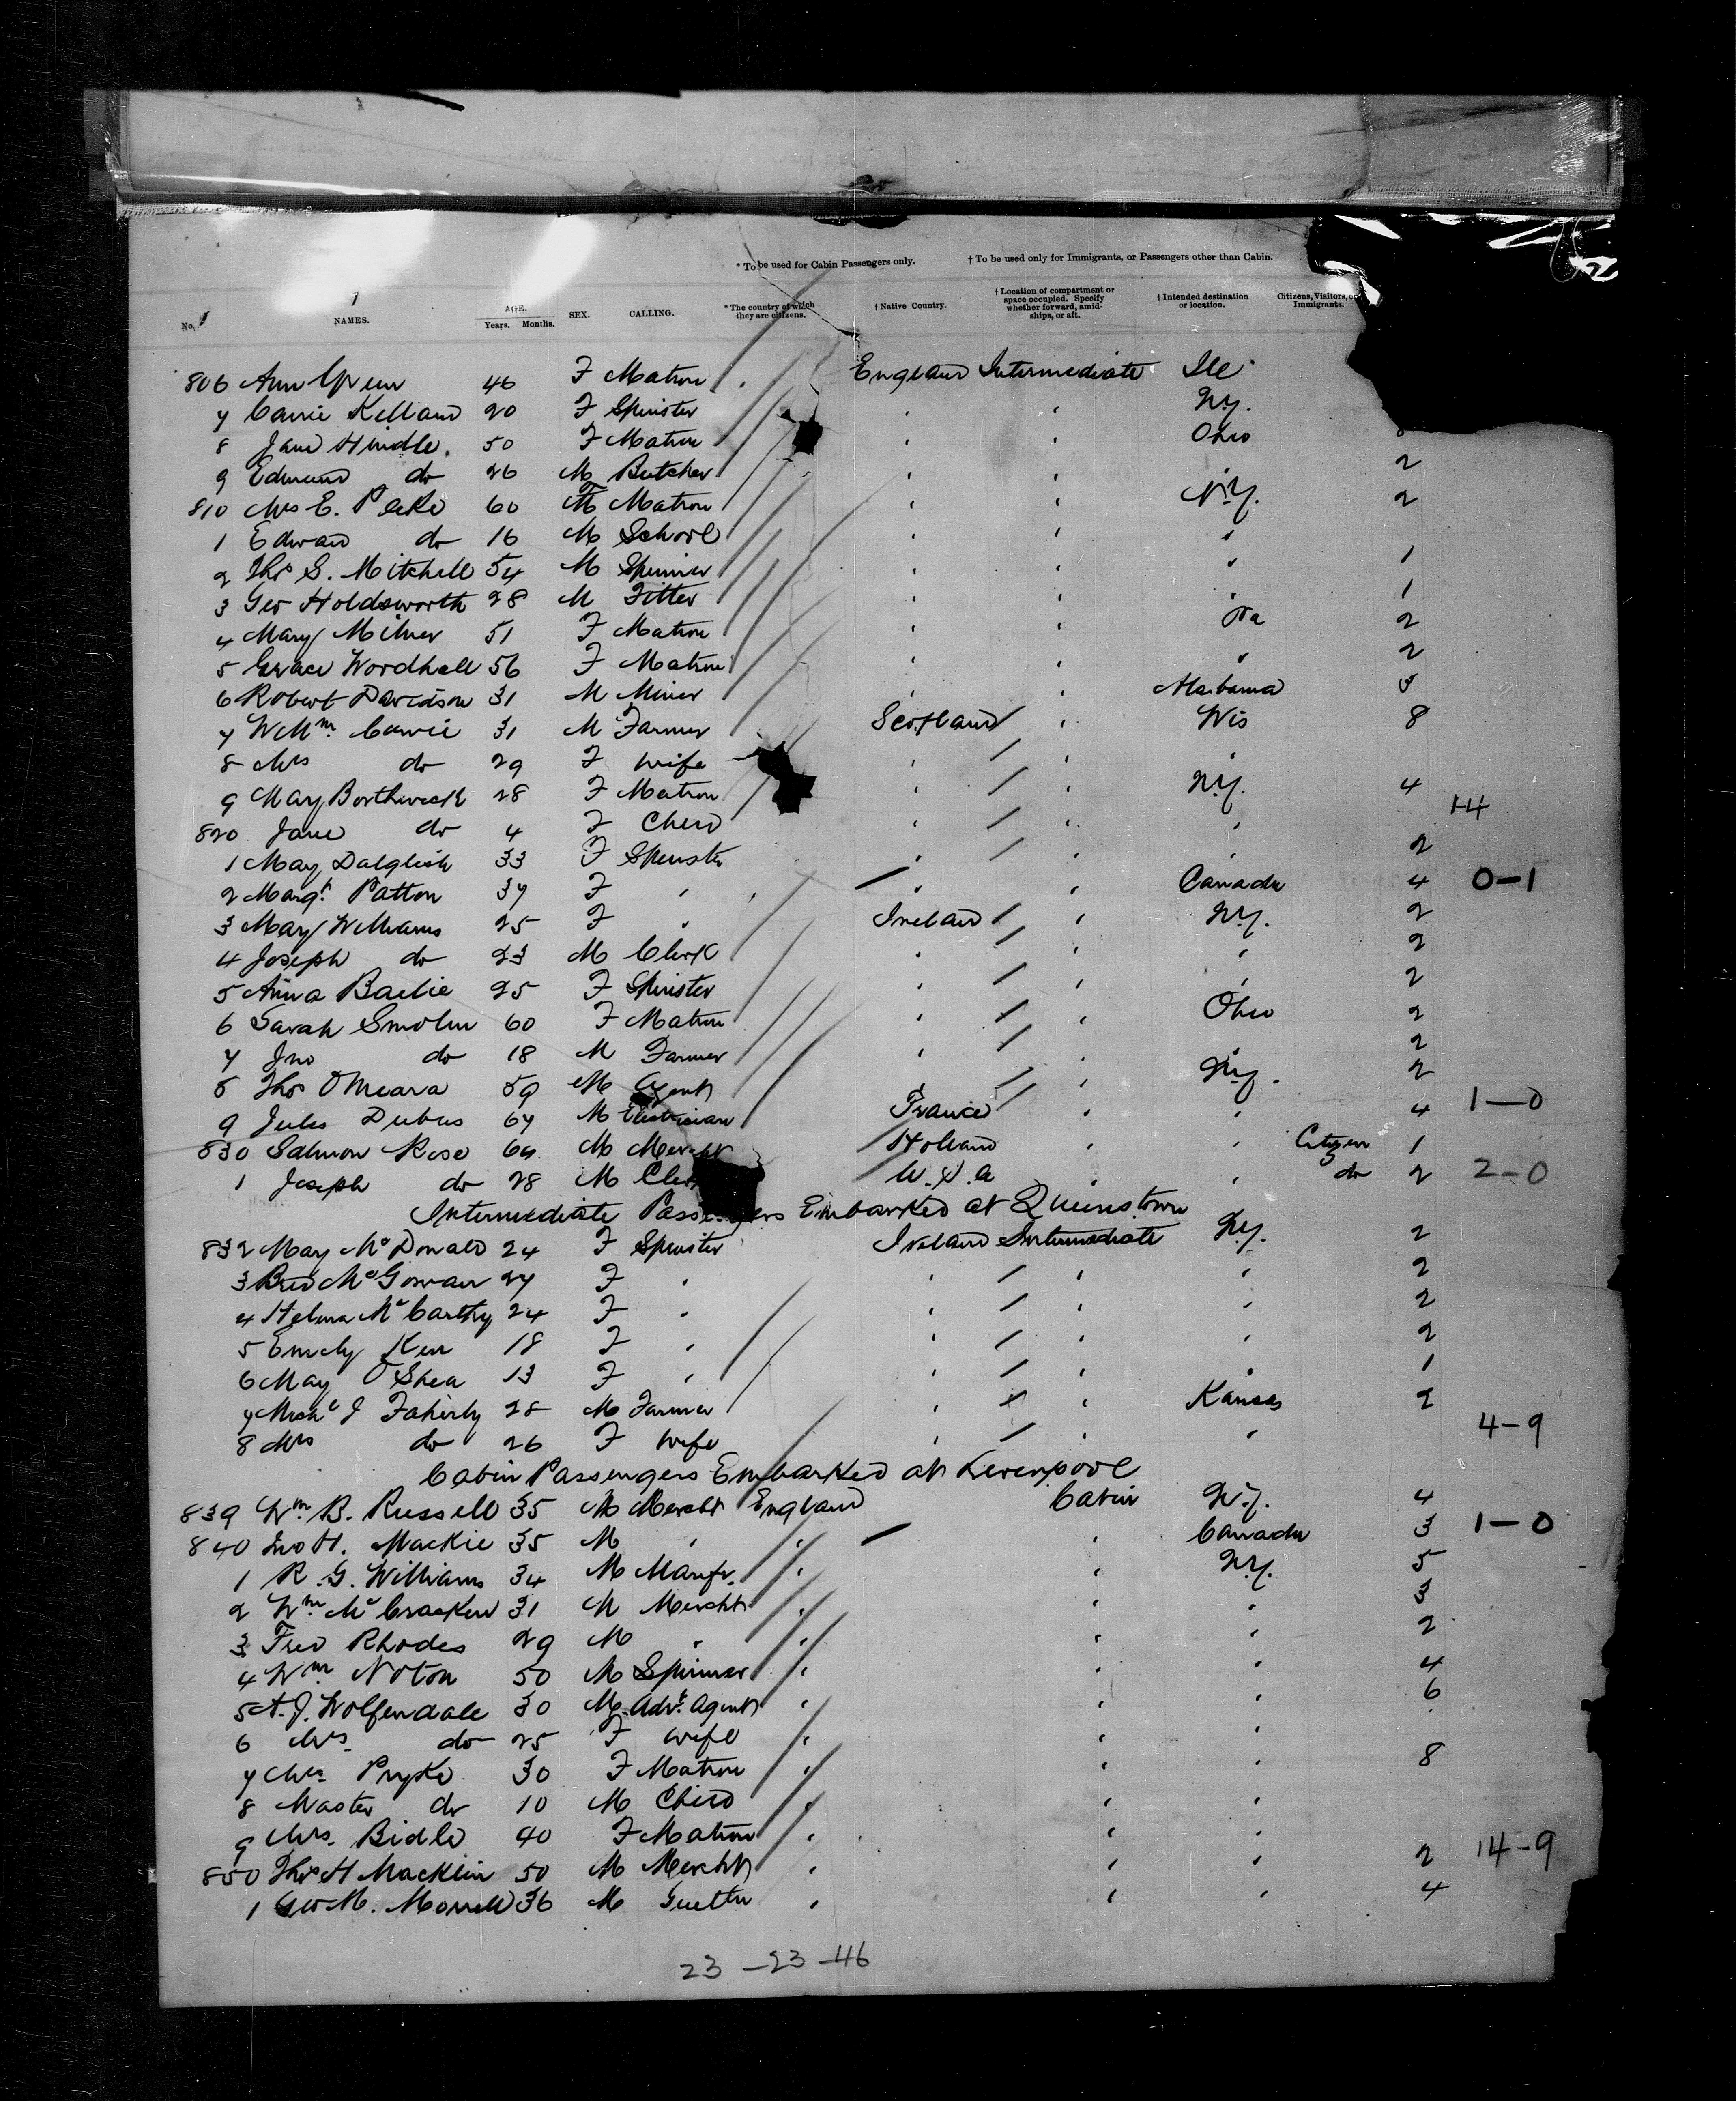 * To be used for Cabin Passengers only. † To be used only for Immigrants, or Passengers other than Cabin.
No. NAMES. AGE. Years. Months. SEX. CALLING. * The country of which they are citizens. † Native Country. † Location of compartment or space occupied. Specify whether forward, amidships, or aft. † Intended destination or location. Citizens, Visitors, or Immigrants.
806 Ann Green 46 F Matron England Intermediate Ill
7 Carrie Kelland 20 F Spinster " " N.Y.
8 Jane Hindle 50 F Matron " " Ohio
9 Edmund do 26 M Butcher " " " 2
810 Mrs E. Peake 60 F Matron " " N.Y. 2
1 Edward do 16 M School " " "
2 Thos S. Mitchell 54 M Spinner " " " 1
3 Geo Holdsworth 28 M Fitter " " " 1
4 Mary Milner 51 F Matron " " Pa 2
5 Grace Wordhall 56 F Matron " " " 2
6 Robert Davidson 31 M Miner " " Alabama 3
7 Wm. Cowie 31 M Farmer Scotland " Wis 8
8 Mrs do 29 F Wife " " "
9 May Borthwick 28 F Matron " " N.Y. 4
820 Jane do 4 F Child " " " 14
1 May Dalglish 33 F Spinster " " " 2
2 Margt. Patton 37 F " " " Canada 4 0-1
3 Mary Williams 25 F " Ireland " N.Y. 2
4 Joseph do 23 M Clerk " " " 2
5 Anna Bailie 25 F Spinster " " " 2
6 Sarah 60 F Matron " " Ohio 2
7 Jno do 18 M Farmer " " " 2
8 Thos O'Meara 59 M Agent " " N.Y. 2
9 Jules Dubus 67 M Electrician France " " 4 1-0
830 Salmon Rose 64 M Mercht Holland " " Citizen 1
1 Joseph do 28 M Clerk U.S.A " " do 2 2-0
Intermediate Passengers Embarked at Queenstown
832 May McDonald 24 F Spinster Ireland Intermediate N.Y. 2
3 Brid McGowan 27 F " " " " 2
4 Helena McCarthy 24 F " " " " 2
5 Emily Kerr 18 F " " " " 2
6 May O'Shea 13 F " " " " 1
7 Michl J Faherty 28 M Farmer " " Kansas 2
8 Mrs do 26 F Wife " " " 4-9
Cabin Passengers Embarked at Liverpool
839 Wm. B. Russell 35 M Mercht England Cabin N.Y. 4
840 Jno H. Mackie 35 M " " " Canada 3 1-0
1 R. G. Williams 34 M Manfr. " " N.Y. 5
2 Wm. McCracken 31 M Mercht " " " 3
3 Fred Rhodes 29 M " " " " 2
4 Wm Noton 50 M Spinner " " " 4
5 A. J. Wolfendale 30 M Advt. Agent " " " 6
6 Mrs. do 25 F Wife " " "
7 Mrs. Pryke 30 F Matron " " " 8
8 Master do 10 M Child " " "
9 Mrs. Bidle 40 F Matron " " "
850 Thos H Macklin 50 M Mercht " " " 2 14-9
1 Geo M. Morrell 36 M " " " 4
23 - 23 - 46